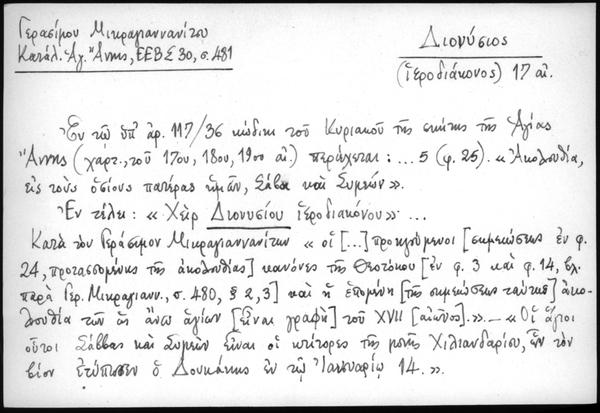 Γερασίμου Μικραγιαννανίτου
Κατάλ. Ἁγ. Ἄννης, ΕΕΒΣ 30, σ. 481
Διονύσιος
(ἱεροδιάκονος) 17 αἰ.
Ἐν τῷ ὑπ' ἀρ. 117/36 κώδικι τοῦ Κυριακοῦ τῆς σκήτης τῆς Ἁγίας
Ἄννης (χάρτ., τοῦ 17ου, 18ου, 19ου αἰ.) περιέχεται: ... 5 (φ. 25). «Ἀκολουθία,
εἰς τοὺς ὁσίους πατέρας ἡμῶν, Σάβα καὶ Συμεών».
Ἐν τέλει: «Χεὶρ Διονυσίου ἱεροδιακόνου» ...
Κατὰ τὸν Γεράσιμον Μικραγιαννανίτην «οἱ [...] προηγούμενοι [σημειώσεως ἐν φ.
24, προτασσομένης τῆς ἀκολουθίας] κανόνες τῆς Θεοτόκου [ἐν φ. 3 καὶ φ. 14, βλ.
παρὰ Γερ. Μικραγιανν., σ. 480, § 2, 3] καὶ ἡ ἑπομένη [τῆς σημειώσεως ταύτης] ἀκο-
λουθία τῶν ὡς ἄνω ἁγίων [εἶναι γραφὴ] τοῦ XVII [αἰῶνος].» — «Οἱ ἅγιοι
οὗτοι Σάββας καὶ Συμεὼν εἶναι οἱ κτίτορες τῆς μονῆς Χιλιανδαρίου, ὧν τὸν
βίον ἐτύπωσεν ὁ Δουκάκης ἐν τῷ Ἰανουαρίῳ 14.».